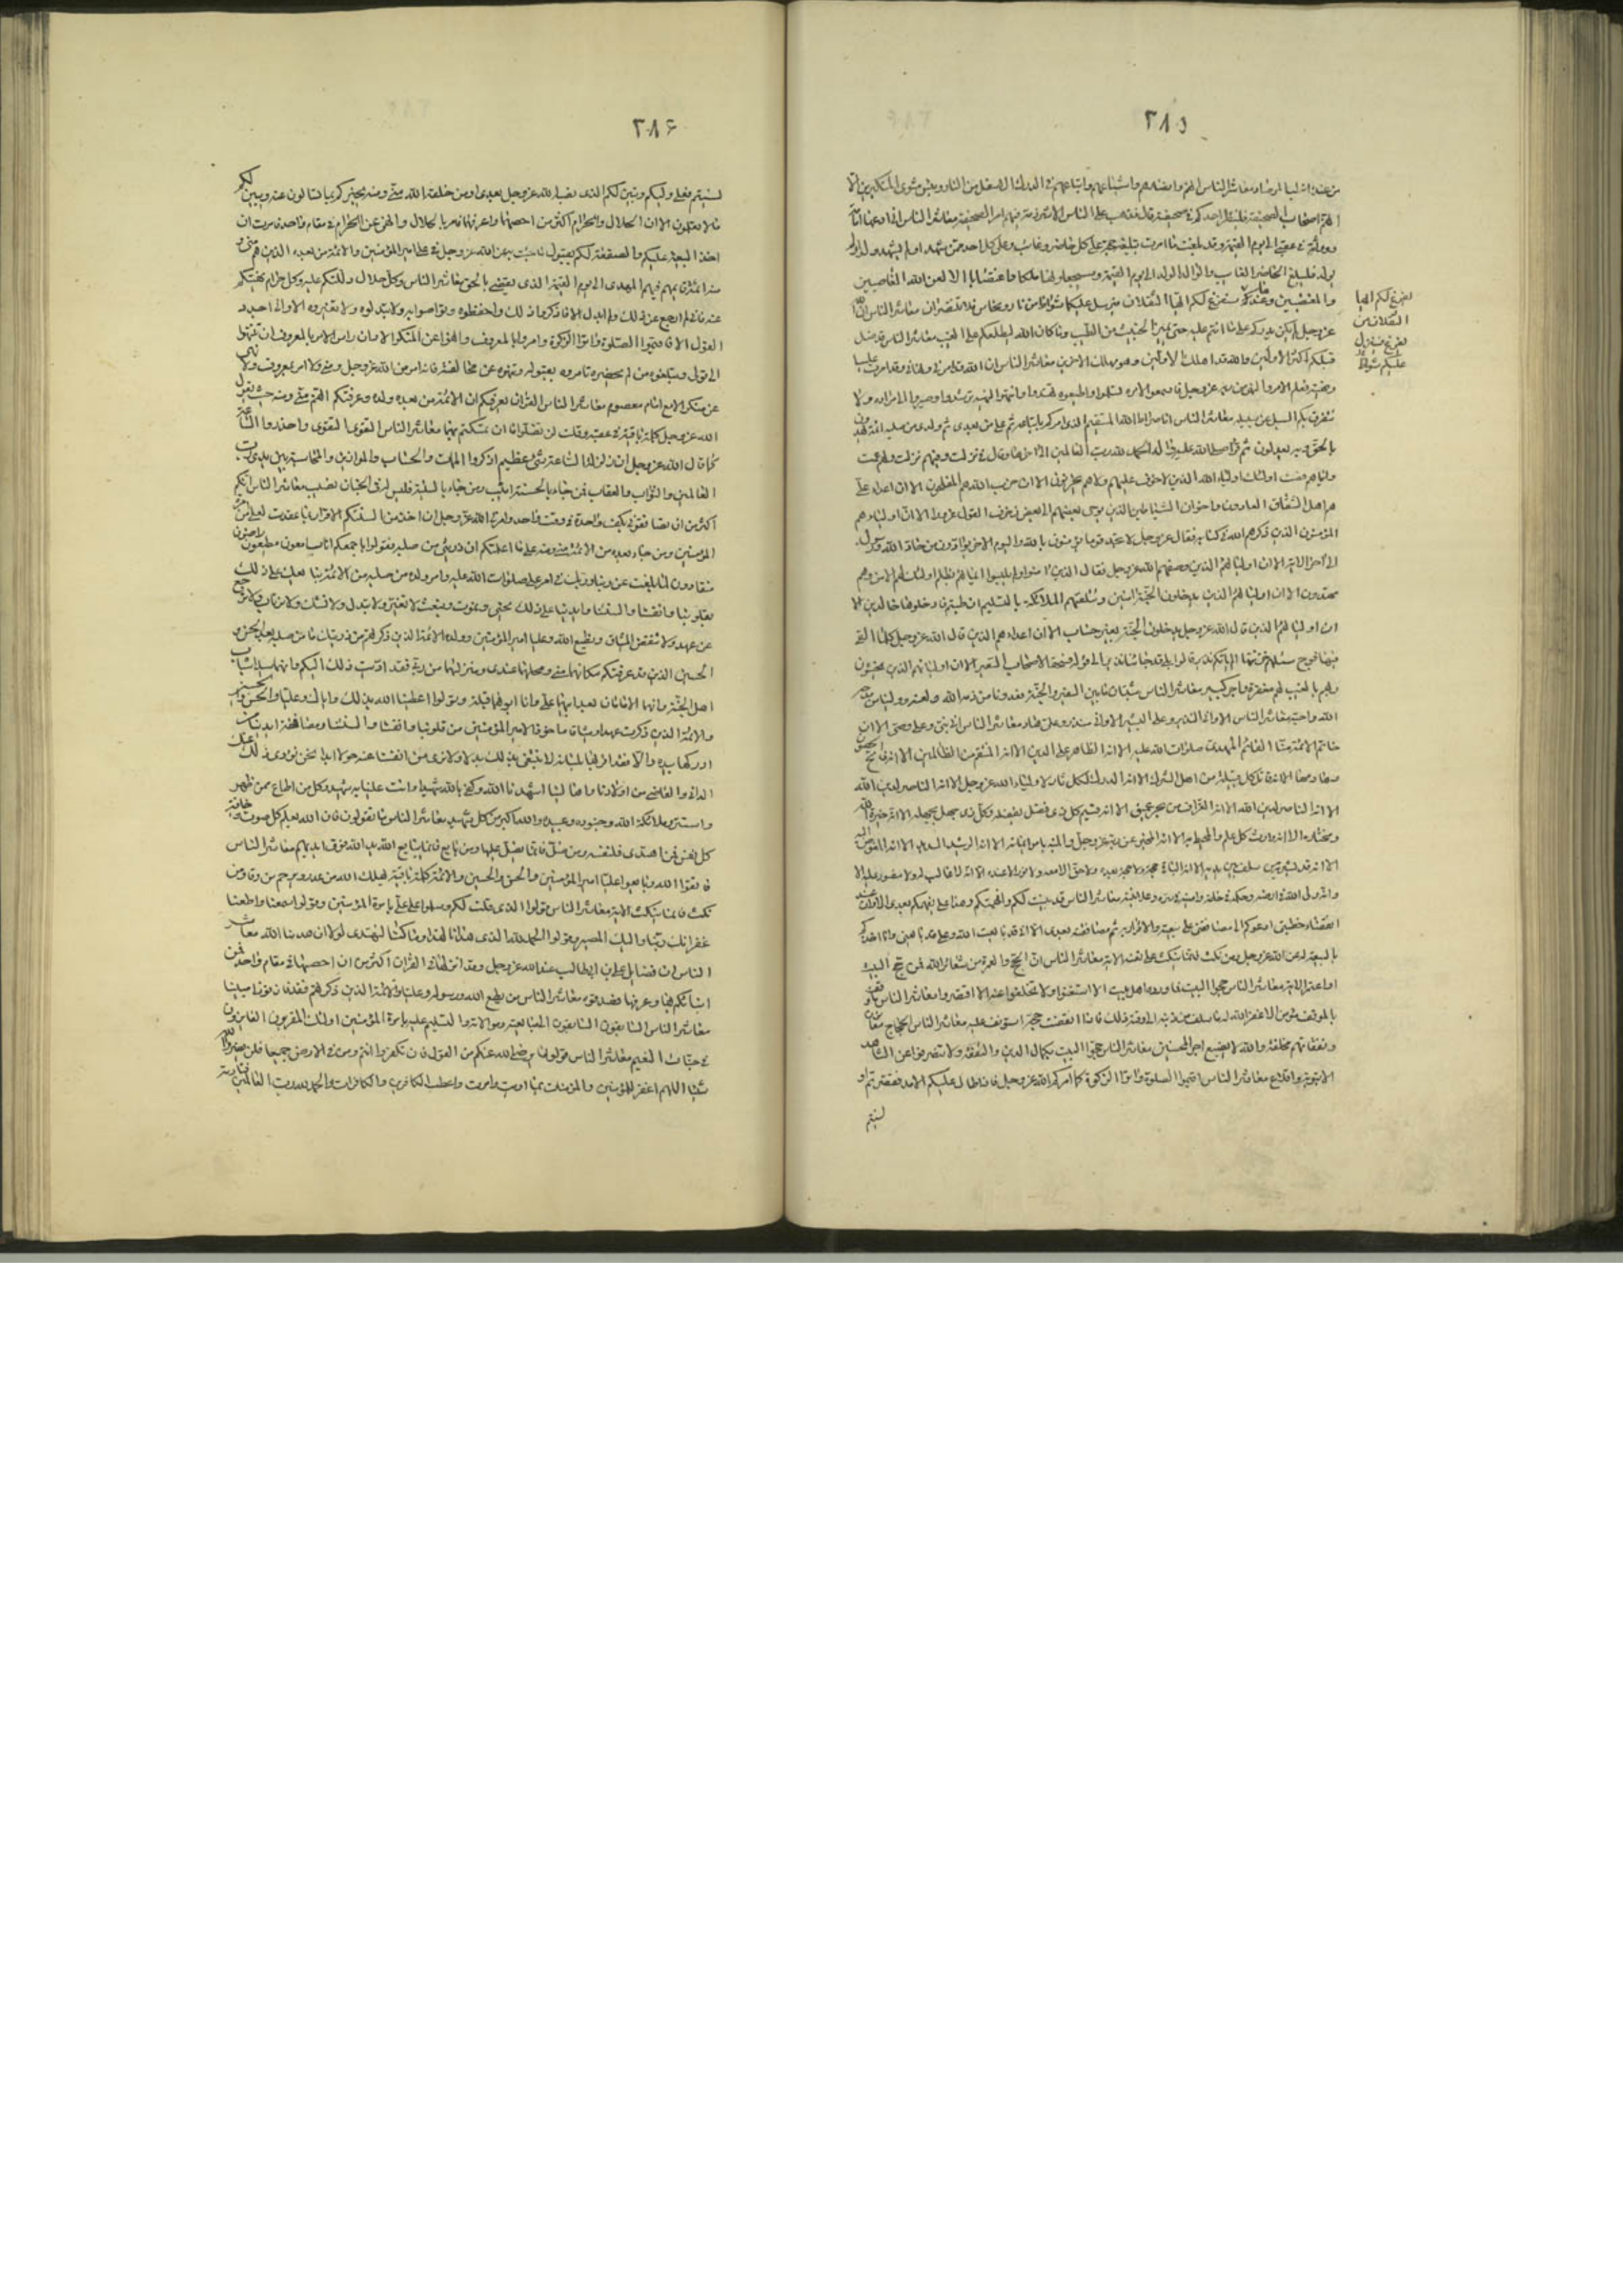 ٢٨٥
معاشر الناس انهم وانصارهم واشياعهم واتباعهم في الدرك الاسفل من النار وبئس مثوى المتكبرين الا
انهم اصحاب الصحيفة فلينظر احدكم في صحيفته قال فذهب على الناس الا شرذمة منهم امر الصحيفة معاشر الناس اني ادعها امامة
ووراثة في عقبي الى يوم القيمة وقد بلغت ما امرت بتبليغه حجة على كل حاضر وغائب وعلى كل احد ممن شهد او لم يشهد ولد او لم
يولد فليبلغ الحاضر الغائب والوالد الولد الى يوم القيمة وسيجعلونها ملكا واغتصابا الا لعن الله الغاصبين
والمغتصبين وعندها سنفرغ لكم ايها الثقلان فيرسل عليكما شواظ من نار ونحاس فلا تنتصران معاشر الناس ان الله
عز وجل لم يكن يذركم على ما انتم عليه حتى يميز الخبيث من الطيب وما كان الله ليطلعكم على الغيب معاشر الناس قد ضل
قبلكم اكثر الاولين والله قد اهلك الاولين وهو مهلك الاخرين معاشر الناس ان الله قد امرني ونهاني وقد امرت عليا
ونهيته فعلم الامر والنهي من ربه عز وجل فاسمعوا لامره تسلموا واطيعوه تهتدوا وانتهوا لنهيه ترشدوا وصيروا الى مراده ولا
تتفرق بكم السبل عن سبيله معاشر الناس انا صراط الله المستقيم الذي امركم باتباعه ثم علي من بعدي ثم ولدي من صلبه ائمة يهدون
بالحق وبه يعدلون ثم قرأ صلى الله عليه واله الحمد لله رب العالمين الى اخرها وقال في نزلت وفيهم نزلت ولهم عمت
واياهم خصت اولئك اولياء الله الذين لا خوف عليهم ولا هم يحزنون الا ان حزب الله هم المفلحون الا ان اعداء علي
هم اهل الشقاق العادون واخوان الشياطين الذين يوحي بعضهم الى بعض زخرف القول غرورا الا ان اولياءهم
المؤمنون الذين ذكرهم الله في كتابه فقال عز وجل لا تجد قوما يؤمنون بالله واليوم الاخر يوادون من حاد الله ورسوله
الى اخر الاية الا ان اوليائهم الذين وصفهم الله عز وجل فقال الذين امنوا ولم يلبسوا ايمانهم بظلم اولئك لهم الامن وهم
مهتدون الا ان اوليائهم الذين يدخلون الجنة امنين وتتلقاهم الملائكة بالتسليم ان طبتم فادخلوها خالدين الا
ان اوليائهم الذين قال الله عز وجل يدخلون الجنة بغير حساب الا ان اعداءهم الذين قال الله عز وجل كلما القي
فيها فوج سئلهم خزنتها الم ياتكم نذير قالوا بلى قد جاءنا نذير الى قوله فسحقا لاصحاب السعير الا ان اوليائهم الذين يخشون
ربهم بالغيب لهم مغفرة واجر كبير معاشر الناس شتان ما بين السعير والجنة فعدونا من ذمه الله ولعنه وولينا من مدحه
الله واحبه معاشر الناس الا واني النذير وعلي البشير الا واني منذر وعلي هاد معاشر الناس اني نبي وعلي وصي الا ان
خاتم الائمة منا القائم المهدي صلوات الله عليه الا انه الظاهر على الدين الا انه المنتقم من الظالمين الا انه فاتح الحصون
وهادمها الا انه قاتل كل قبيلة من اهل الشرك الا انه المدرك لكل ثار لاولياء الله عز وجل الا انه الناصر لدين الله
الا انه الناصر لدين الله الا انه الغراف من بحر عميق الا انه قسيم كل ذي فضل بفضله وكل ذي جهل بجهله الا انه خيرة الله
ومختاره الا انه وارث كل علم والمحيط به الا انه المخبر عن ربه عز وجل والمنبه بامر ايمانه الا انه الرشيد السديد الا انه المفوض اليه
الا انه قد بشر به من سلف بين يديه الا انه الباقي حجة ولا حجة بعده ولا حق الا معه ولا نور الا عنده الا انه لا غالب له ولا منصور عليه الا
وانه ولي الله في ارضه وحكمه في خلقه وامينه في سره وعلانيته معاشر الناس قد بينت لكم وافهمتكم وهذا علي يفهمكم بعدي الا وان عند
انقضاء خطبتي ادعوكم الى مصافقتي على بيعته والاقرار به ثم مصافقته بعدي الا اني قد بايعت الله وعلي قد بايعني وانا اخذكم
بالبيعة له عن الله عز وجل ومن نكث فانما ينكث على نفسه الاية معاشر الناس ان الحج والعمرة من شعائر الله فمن حج البيت
او اعتمر الاية معاشر الناس حجوا البيت فما ورده اهل بيت الا استغنوا ولا تخلفوا عنه الا افتقروا معاشر الناس ما وقف
بالموقف مؤمن الا غفر الله له ما سلف من ذنبه الى وقته ذلك فاذا انقضت حجته استونف عليه معاشر الناس الحجاج معانون
ونفقاتهم مخلفة والله لا يضيع اجر المحسنين معاشر الناس حجوا البيت بكمال الدين والتفقه ولا تنصرفوا عن المشاهد
الا بتوبة واقلاع معاشر الناس اقيموا الصلوة واتوا الزكوة كما امركم الله عز وجل فان طال عليكم الامد فقصرتم او
نسيتم
سنفرغ لكم ايها
الثقلان من
عليكم شواظ
٢٨۶
نسيتم فعلي وليكم ومبين لكم الذي نصبه الله عز وجل بعدي ومن خلقه الله مني ومنه يخبركم بما تسالون عنه ويبين لكم
ما لا تعلمون الا ان الحلال والحرام اكثر من احصيهما واعرفهما فامر بالحلال وانهى عن الحرام في مقام واحد فامرت ان
اخذ البيعة عليكم والصفقة لكم بقبول ما جئت به عن الله عز وجل في علي امير المؤمنين والائمة من بعده الذين هم مني و
منه ائمة قائمهم فيهم المهدي الى يوم القيمة الذي يقضي بالحق معاشر الناس وكل حلال دللتكم عليه وكل حرام نهيتكم
عنه فاني لم ارجع عن ذلك ولم ابدل الا فاذكروا ذلك واحفظوه وتواصوا به ولا تبدلوه ولا تغيروه الا واني اجدد
القول الا فاقيموا الصلوة واتوا الزكوة وامروا بالمعروف وانهوا عن المنكر الا وان راس الامر بالمعروف ان تنتهوا
الى قولي وتبلغوه من لم يحضره وتامروه بقبوله وتنهوه عن مخالفته فانه امر من الله عز وجل ومني ولا امر بمعروف ولا نهي
عن منكر الا مع امام معصوم معاشر الناس القران يعرفكم ان الائمة من بعده ولده وعرفتكم انهم مني ومنه حيث يقول
الله عز وجل كلمة باقية في عقبه وقلت لن تضلوا ما ان تمسكتم بهما معاشر الناس التقوى التقوى واحذروا الساعة
كما قال الله عز وجل ان زلزلة الساعة شئ عظيم اذكروا الممات والحساب والموازين والمحاسبة بين يدي رب
العالمين والثواب والعقاب فمن جاء بالحسنة اثيب ومن جاء بالسيئة فليس له في الجنان نصيب معاشر الناس انكم
اكثر من ان تصافقوني بكف واحدة في وقت واحد وامرني الله عز وجل ان اخذ من السنتكم الاقرار بما عقدت لعلي امرة
المؤمنين ومن جاء بعده من الائمة مني ومنه على ما اعلمتكم ان ذريتي من صلبه فقولوا باجمعكم انا سامعون مطيعون راضون
منقادون لما بلغت عن ربنا وربك في امر علي صلوات الله عليه وامر ولده من صلبه من الائمة نبايعك على ذلك
بقلوبنا وانفسنا والسنتنا وايدينا على ذلك نحيى ونموت ونبعث لا نغير ولا نبدل ولا نشك ولا نرتاب ولا نرجع
عن عهد ولا ننقض الميثاق ونطيع الله وعليا امير المؤمنين وولده الائمة الذين ذكرتهم من ذريتك من صلبه بعد الحسن و
الحسين الذين قد عرفتكم مكانهما مني ومحلهما عندي ومنزلتهما من ربي فقد اديت ذلك اليكم وانهما سيدا شباب
اهل الجنة وانهما الامامان بعد ابيهما علي وانا ابوهما قبله وقولوا اعطينا الله بذلك واياك وعليا والحسن والحسين
والائمة الذين ذكرت عهدا وميثاقا ماخوذا لامير المؤمنين من قلوبنا وانفسنا والسنتنا ومصافقة ايدينا من
ادركهما بيده والا فقد اقر بهما بلسانه لا نبتغي بذلك بدلا ولا نرى من انفسنا عنه حولا ابدا نحن نؤدي ذلك عنك
الداني والقاصي من اولادنا واهالينا اشهدنا الله وكفى بالله شهيدا وانت علينا به شهيد وكل من اطاع ممن ظهر
واستتر وملائكة الله وجنوده وعبيده والله اكبر من كل شهيد معاشر الناس ما تقولون فان الله يعلم كل صوت وخافية
كل نفس فمن اهتدى فلنفسه ومن ضل فانما يضل عليها ومن بايع فانما يبايع الله يد الله فوق ايديهم معاشر الناس
فاتقوا الله وبايعوا عليا امير المؤمنين والحسن والحسين والائمة كلمة باقية يهلك الله من غدر ويرحم من وفى ومن
نكث فانما ينكث الاية معاشر الناس قولوا الذي قلت لكم وسلموا على علي بامرة المؤمنين وقولوا سمعنا واطعنا
غفرانك ربنا واليك المصير وقولوا الحمد لله الذي هدانا لهذا وما كنا لنهتدي لولا ان هدينا الله معاشر
الناس ان فضايل علي بن ابي طالب عند الله عز وجل وقد انزلها في القران اكثر من ان احصيها في مقام واحد فمن
انباكم بها وعرفها فصدقوه معاشر الناس من يطع الله ورسوله وعليا والائمة الذين ذكرتهم فقد فاز فوزا مبينا
معاشر الناس السابقون السابقون الى مبايعته وموالاته والتسليم عليه بامرة المؤمنين اولئك المقربون الفائزون
في جنات النعيم معاشر الناس قولوا ما يرضى الله عنكم من القول فان تكفروا انتم ومن في الارض جميعا فلن يضروا الله
شيئا اللهم اغفر للمؤمنين والمؤمنات بما اديت وامرت واعطب الكافرين والكافرات والحمد لله رب العالمين